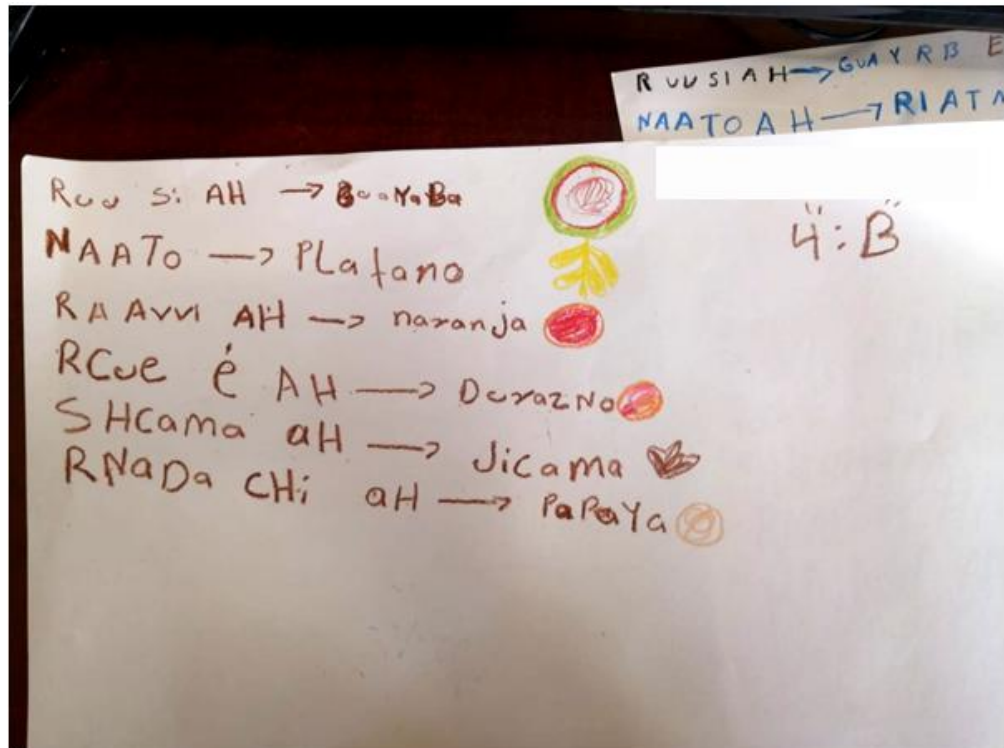 RUUSIAH → GUAYRB E
NAATOAH → RIATN
Ruu Si AH → GuaYaBa
4:"B"
NAATo → PLatano
RAAvvi AH → naranja
RCue é AH → DurazNo
SHCama aH → Jicama
RNaDa CHi aH → PaPaYa